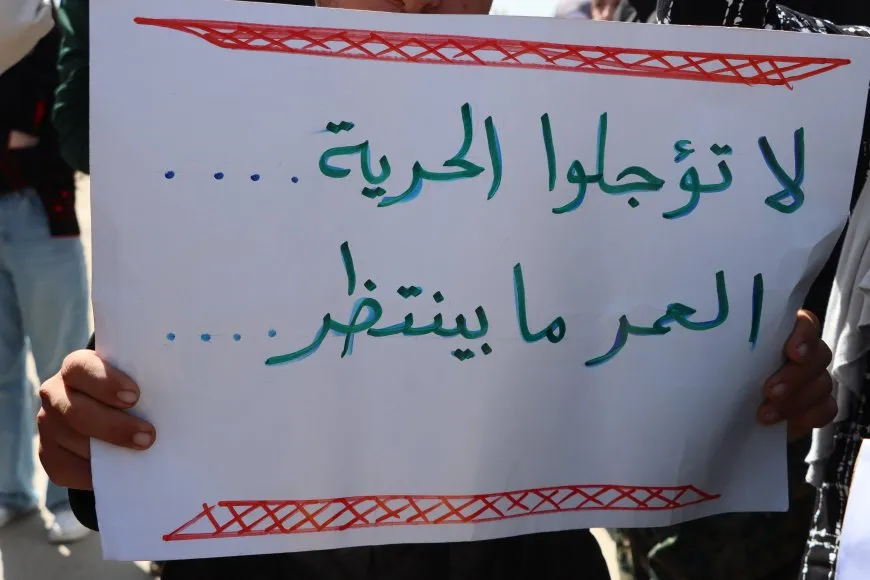 لا تؤجلوا الحرية ....
العمر ما بينتظر ....